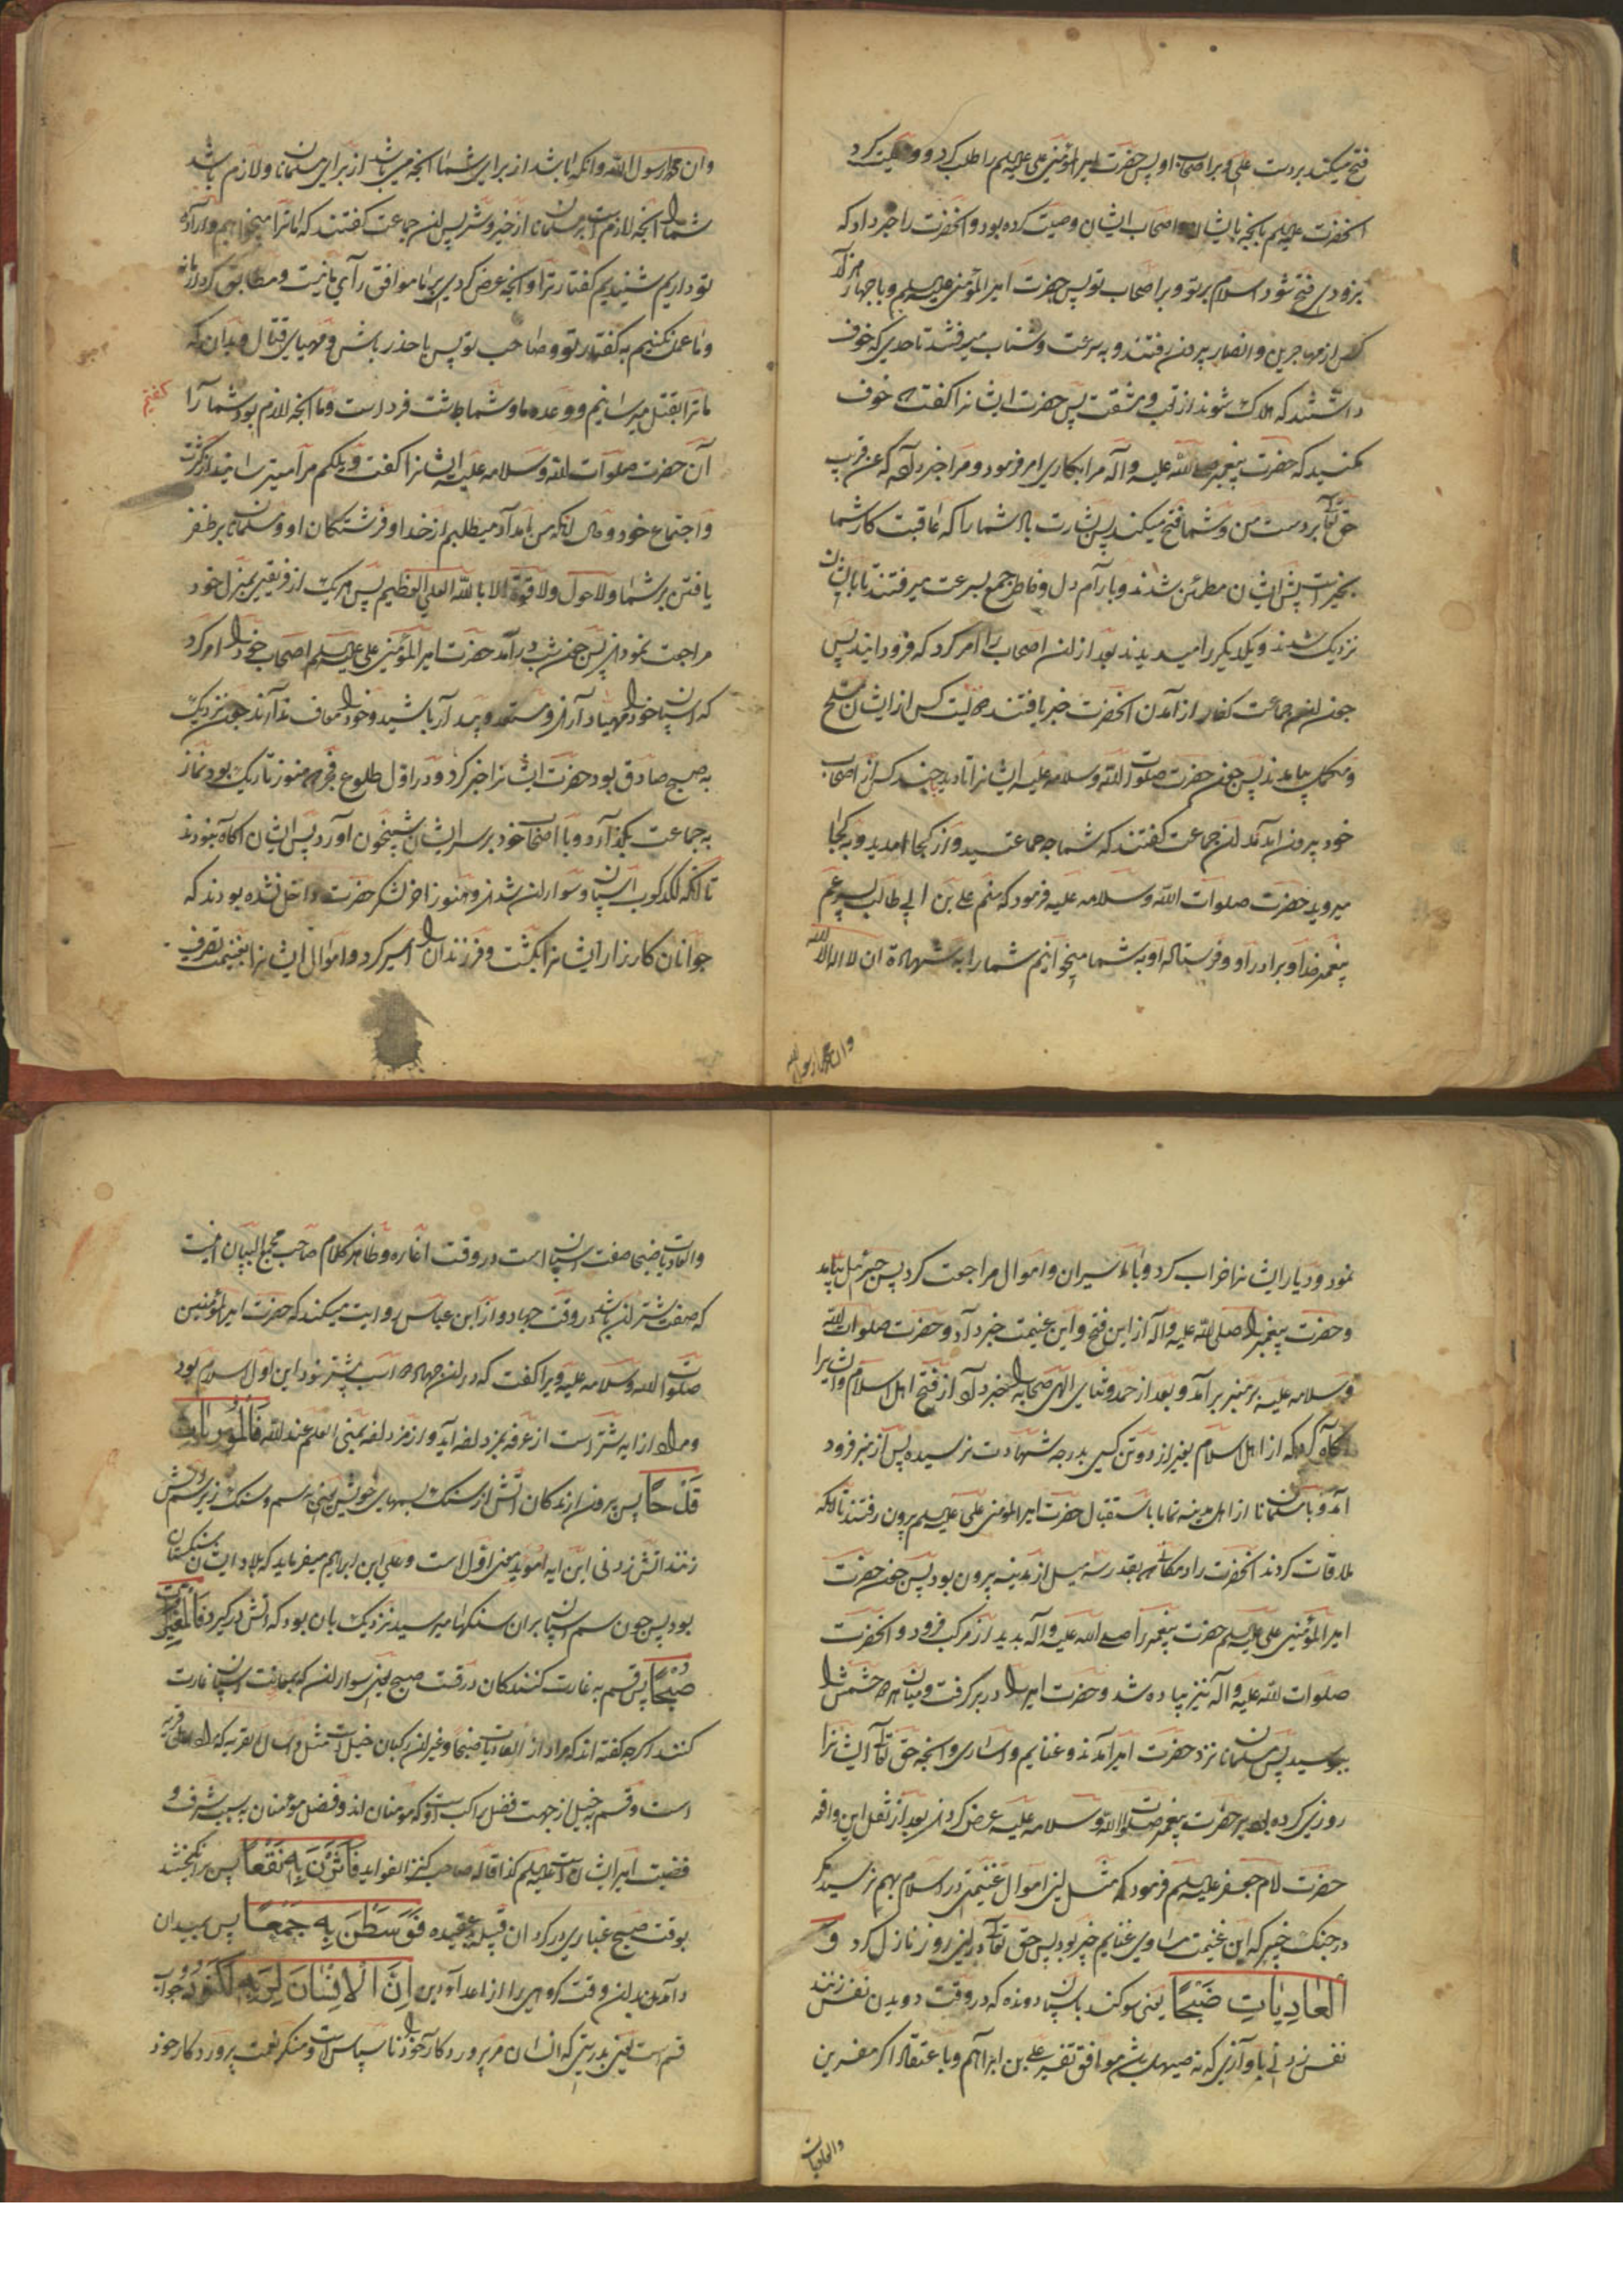 فتح میکند بردست علی و بر اصحاب او پس حضرت امیر المؤمنین علی علیه السلم را طلب کرد و وصیت کرد
انحضرت علیه السلم بانچه بایشان و اصحاب ایشان وصیت کرده بود و انحضرت را خبر داد که
بزودی فتح شود اسلام بر تو و بر اصحاب تو پس حضرت امیر المؤمنین علیه السلم و با چهار هزار
کس از مهاجرین و انصار بیرون رفتند و به سرعت و شتاب میرفتند تا حدی که خوف
داشتند که هلاک شوند از تعب و مشقت پس حضرت ایشانرا گفت که خوف
مکنید که حضرت پیغمبر صلی الله علیه و آله مرا بکاری امر فرمود و مرا خبر داده که عن قریب
حق تعالی بر دست من و شما فتح میکند پس بشارت باد شما را که عاقبت کار شما
بخیر است پس ایشان مطمئن شدند و با آرام دل و خاطر جمع بسرعت میرفتند تا بایشان
نزدیک شدند و یکدیگر را میدیدند بعد از ان اصحاب را امر کرد که فرود ایند پس
چون ان جماعت کفار از آمدن انحضرت خبر یافتند دویست کس از ایشان مسلح
و مکمل بیامدند پس چون حضرت صلوات الله وسلامه علیه ایشانرا بادید چند کس از اصحاب
خود بیرون امدند ان جماعت گفتند که شما چه جماعتید و از کجا امدید و به کجا
میروید حضرت صلوات الله وسلامه علیه فرمود که منم علی بن ابی طالب پسر عم
پیغمبر خدا و برادر او و فرستاده او به شما میخوانیم شما را به شهادة ان لا اله الا الله
وان محمدا رسول الله
وان محمدا رسول الله و انکه باشد از برای شما انچه میباشد از برای مسلمانان و لازم باشد
شما را انچه لازمست بر مسلمانان از خیر و شر پس ان جماعت گفتند که ما ترا میخواهیم و اراده
تو داریم شنیدیم گفتار ترا و انچه عرض کردی بر ما موافق رأی ما نیست و مطابق کردار ما نه
و ما عمل نکنیم به گفتار تو و صاحب تو پس با حذر باش و مهیای قتال و بدان که
ما ترا بقتل میرسانیم و وعده ما و شما چاشت فردا است و ما انچه لازم بود شما را گفتیم
آن حضرت صلوات الله وسلامه علیه ایشانرا گفت ویلکم مرا میترسانید از کثرت
و اجتماع خود و حال انکه من امداد میطلبم از خدا و فرشتگان او و مسلمانان بر ظفر
یافتن بر شما ولا حول ولا قوة الا بالله العلی العظیم پس هریک از فریقین بمنزل خود
مراجعت نمودند پس چون شب درآمد حضرت امیر المؤمنین علی علیه السلم اصحاب خود را امر کرد
که اسپان خود را مهیا دارند و مستعد و بیدار باشید و خود را معاف ندارند چون نزدیک
به صبح صادق بود حضرت ایشانرا خبر کرد و در اول طلوع فجر که هنوز تاریک بود نماز
به جماعت بگذارد و با اصحاب خود بر سر ایشان شبیخون آورد پس ایشان اگاه نبودند
تا انکه لگدکوب اسپان و سواران شدند و هنوز اخر لشکر حضرت داخل نشده بودند که
جوانان کارزار ایشانرا بکشت و فرزندان را اسیر کرد و اموال ایشانرا بغنیمت تصرف
نمود و دیار ایشانها خراب کرد و با اسیران و اموال مراجعت کرد پس جبرئیل بیامد
و حضرت پیغمبر را صلی الله علیه و آله از این فتح و این غنیمت خبر داد و حضرت صلوات الله
وسلامه علیه بر منبر برآمد و بعد از حمد و ثنای الهی صحابه را خبر داد از فتح اهل اسلام و ایشانرا
آگاه کرد که از اهل اسلام بغیر از دو تن کسی بدرجه شهادت نرسیده پس از منبر فرود
آمد و با مسلمانان از اهل مدینه تمامی باستقبال حضرت امیر المؤمنین علی علیه السلم بیرون رفتند تا انکه
ملاقات کردند انحضرت را در مکانی که بقدر سه میل از مدینه بیرون بود پس چون حضرت
امیر المؤمنین علی علیه السلم حضرت پیغمبر را صلی الله علیه و آله بدید از مرکب فرود و انحضرت
صلوات الله علیه و اله نیز پیاده شد و حضرت امیر را در بر گرفت و میان هر دو چشمش را
ببوسید پس مسلمانان نزد حضرت امیر آمدند و غنایم و اساری و انچه حق تعالی ایشانرا
روزی کرده بود بر حضرت پیغمبر صلوات الله وسلامه علیه عرض کردند بعد از نقل این واقعه
حضرت امام جعفر علیه السلم فرمود که مثل این اموال غنیمتی در اسلام بهم نرسید مگر
در جنگ خیبر که این غنیمت مساوی غنایم خیبر بود پس حق تعالی در این روز نازل کرد و
العادیات ضبحا یعنی سوگند باسپان دونده که در وقت دویدن نفس زنند
نفس زدنی با وآزی که نه صهیل باشد موافق تفسیر علی بن ابراهیم و با عتقاد اکثر مفسرین
والعادیات
والعادیات ضبحا صفت اسپان است در وقت اغاره و ظاهر کلام صاحب مجمع البیان انست
که صفت شتران باشد در وقت جهاد و از ابن عباس روایت میکند که حضرت امیر المؤمنین
صلوات الله وسلامه علیه ویرا گفت که در ان جهاد دو اسب بیشتر نبود این اول اسلام بود
و مراد از ابه شتر است از عرفه بمزدلفه آید و از مزدلفه بمنی العلم عند الله فالموریات
قدحا پس بیرون ارندگان اتش از سنگ بسمهای خویش یعنی به سم و سنگ زیر سم اتش
زنند اتش زدنی این ایه مؤید معنی اول است و علی ابن ابراهیم میفرماید که بلاد ایشان سنگستان
بود پس چون سم اسپان بران سنگها میرسید نزدیک بان بود که اتش در گیرد فالمغیرات
صبحا پس قسم به غارت کنندگان در وقت صبح یعنی سواران که بمعاونت اسپان غارت
کنند اگرچه گفته اند که مراد از العادیات ضبحا و غیر ان رکبان خیل است مثل واسال القریه که مراد اهل قریه
است و قسم به خیل از جهت فضل راکب است که مؤمنان اند و فضل مؤمنان به سبب شرف و
فضیلت امیر ایشان است علیه السلم کذا قاله صاحب کنز الفواید فاثرن به نقعا پس برانگیختند
بوقت صبح غباری در گرد ان قبیله فوسطن به جمعا پس بمیدان
درآمدند در ان وقت گروهی را از اعداء دین ان الانسان لربه لکنود جواب
قسم است یعنی بدرستی که انسان مر پروردگار خود را ناسپاس است و منکر نعمت پروردگار خود